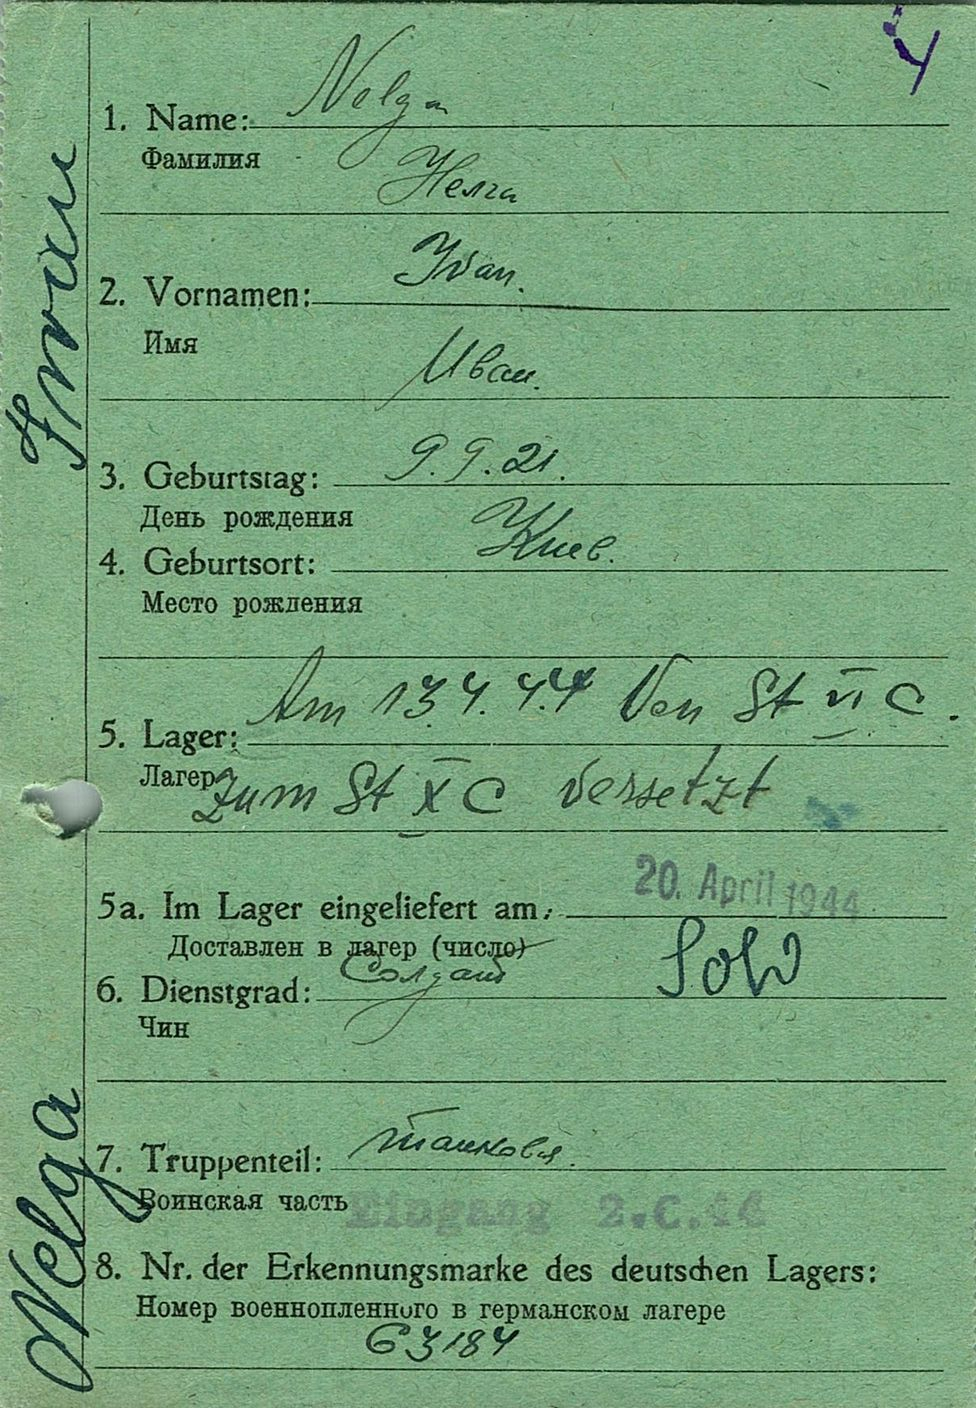 4
1. Name: Nelga
Фамилия
Нелга
2. Vornamen: Ivan.
Имя
Иван.
3. Geburtstag: 9.9.21.
День рождения
4. Geburtsort: Киев.
Место рождения
5. Lager: Am 13.4.44 Von St VI C.
Лагер zum St X C versetzt
5a. Im Lager eingeliefert am: 20. April 1944
Доставлен в лагер (число)
6. Dienstgrad: Солдат Sold
Чин
7. Truppenteil: танковая.
Воинская часть
Eingang
8. Nr. der Erkennungsmarke des deutschen Lagers:
Номер военнопленного в германском лагере
63184
Nelga Iwan